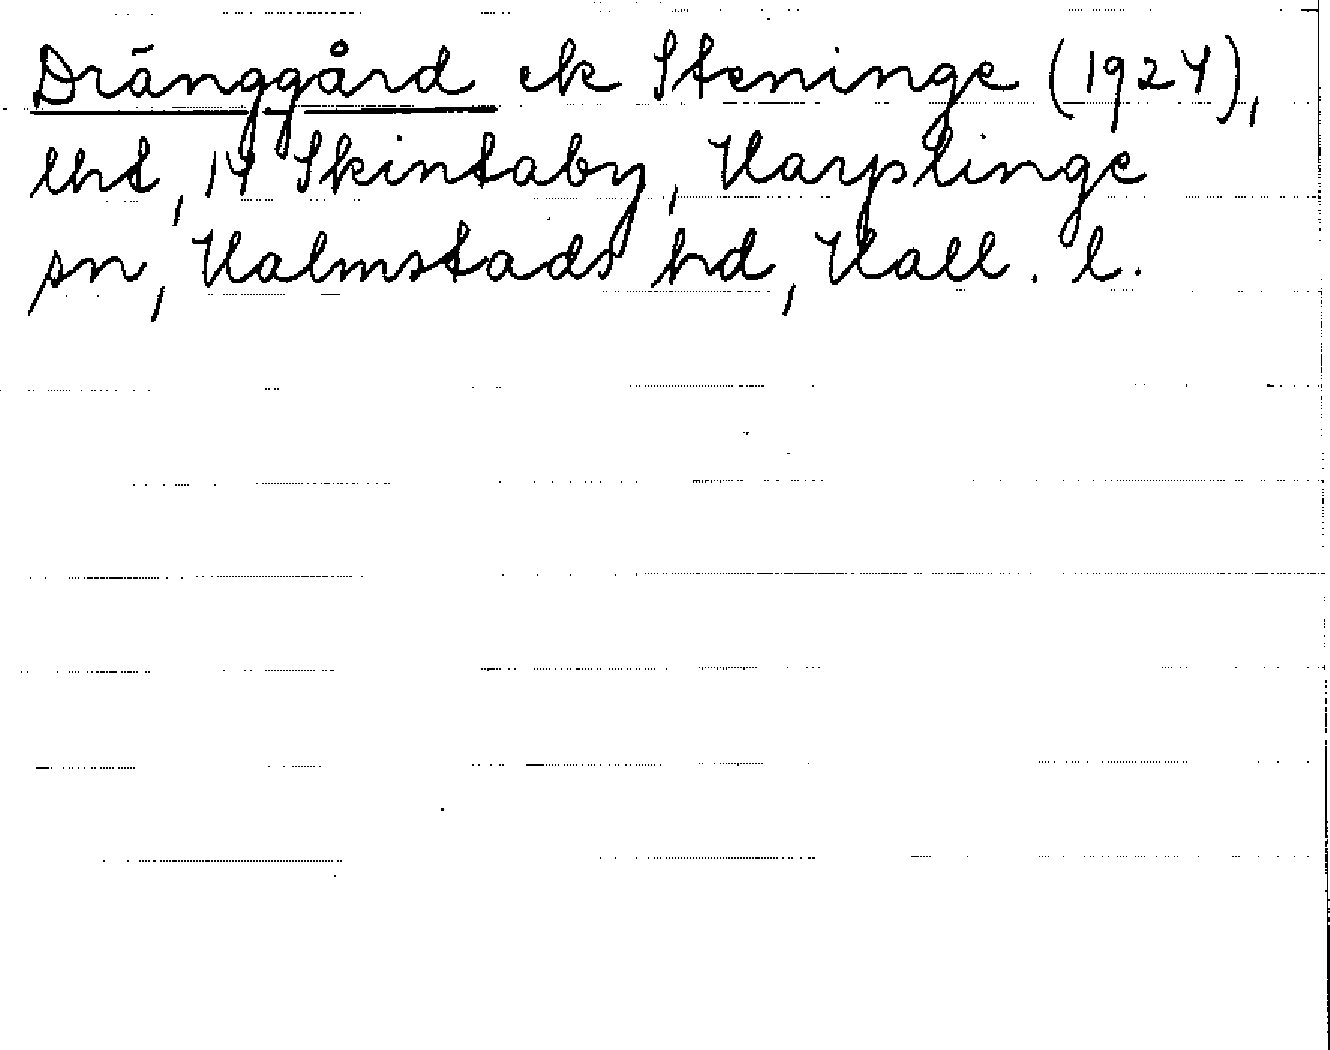 Dränggård ek Steninge (1924),
lht, 14 Skintaby, Harplinge
sn, Halmstads hd, Hall. l.